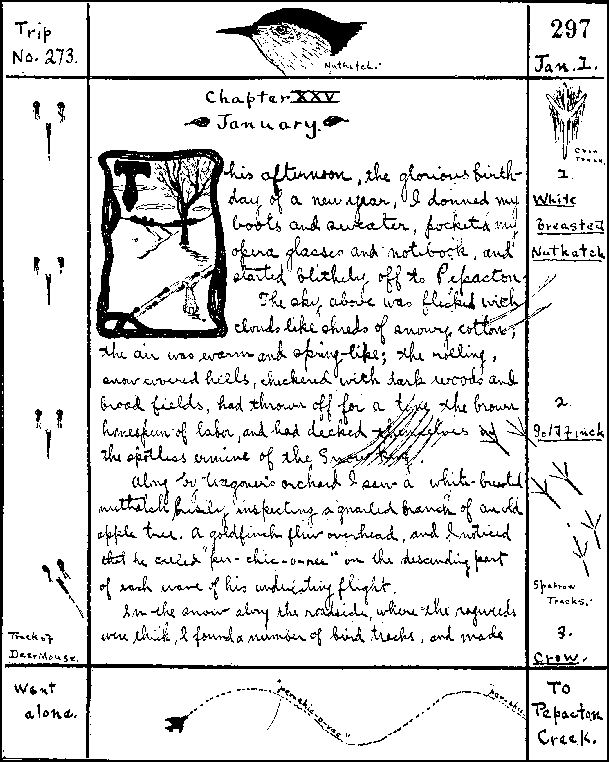 Trip
No. 273.
Nuthatch.
297
Jan. 1.
Chapter XXV
January.
This afternoon, the glorious birth-
day of a new year, I donned my
boots and sweater, pocketed my
opera glasses and notebook, and
started blithely off to Pepacton.
The sky above was flecked with
clouds like shreds of snowy cotton;
the air was warm and spring-like; the rolling,
snow covered hills, checkered with dark woods and
broad fields, had thrown off for a time the brown
homespun of labor, and had decked themselves in
the spotless ermine of the Snow King.
Along by Wagoner's orchard I saw a white-breasted
nuthatch busily inspecting a gnarled branch of an old
apple tree. A goldfinch flew overhead, and I noticed
that he called "per-chic-o-ree" on the descending part
of each wave of his undulating flight.
In the snow along the roadside, where the ragweeds
were thick, I found a number of bird tracks, and made
Crow
Track.
1
White
Breasted
Nuthatch
2
Goldfinch
Sparrow
Tracks.
3.
Crow.
Track of
Deer Mouse.
Went
alone.
"per-chic-o-ree"
"per-chic
To
Pepacton
Creek.